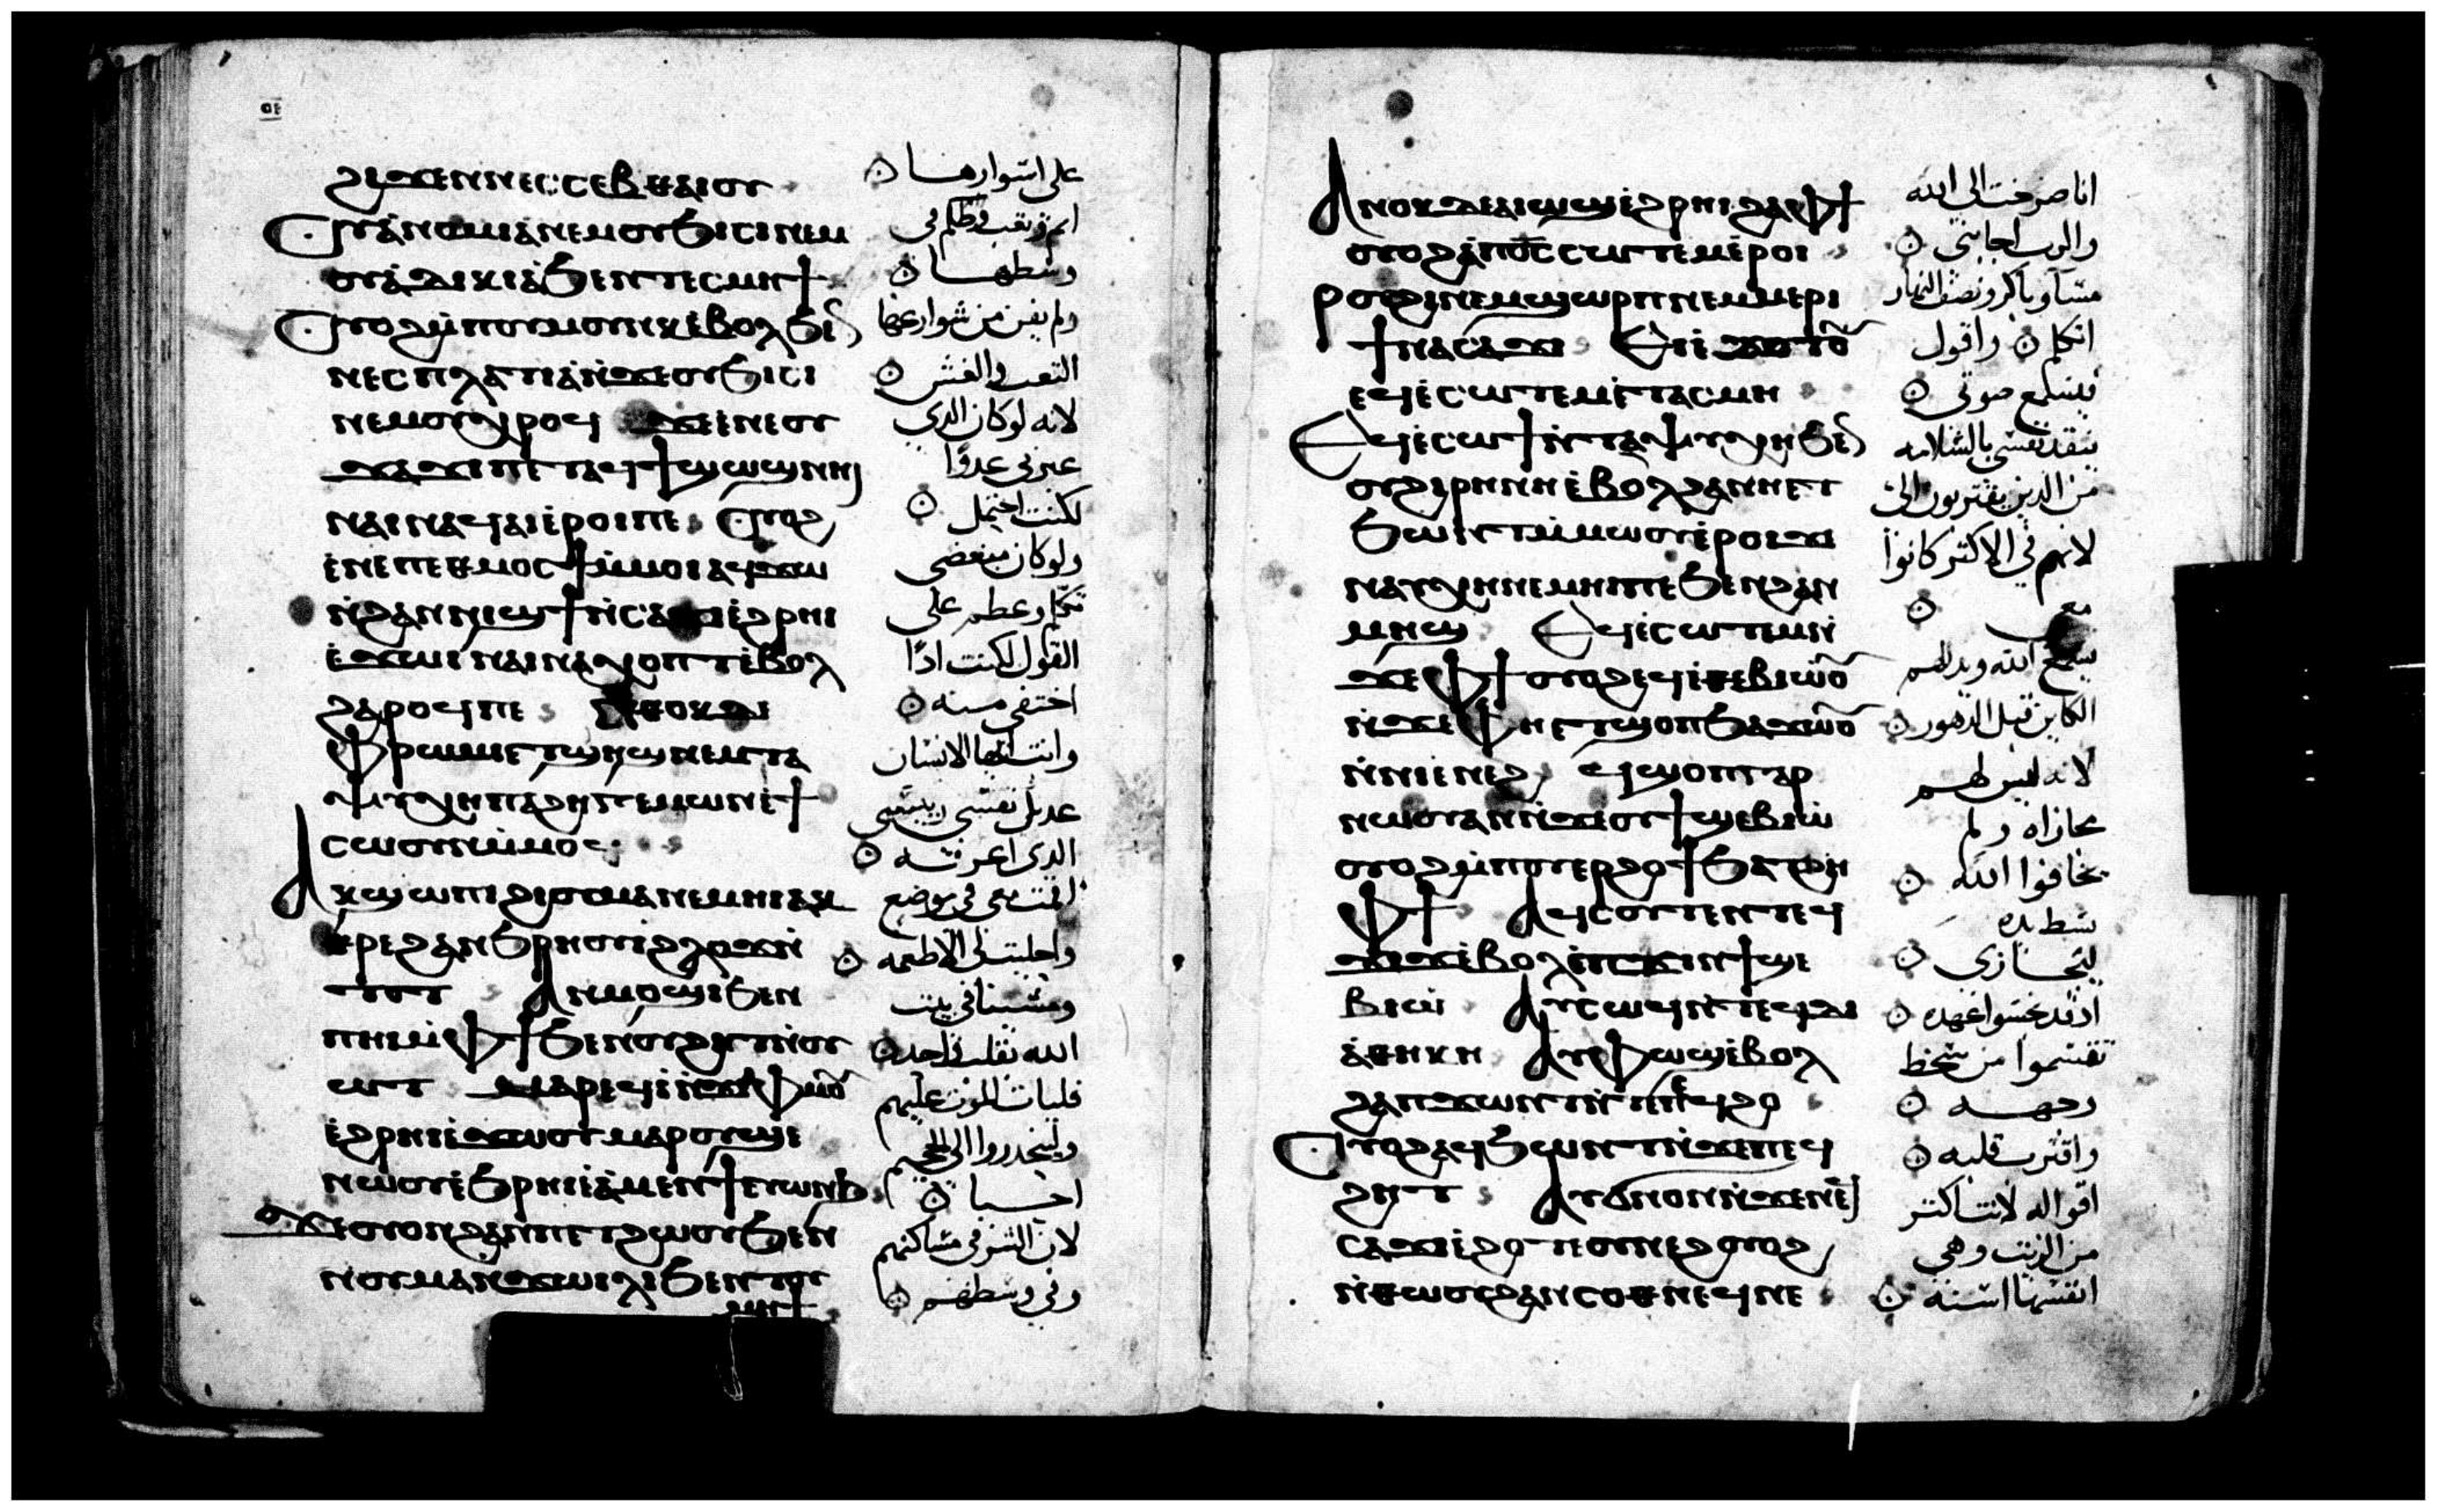 ϩⲓϫⲉⲛ ⲛⲉⲥⲥⲉⲃⲑⲁⲓⲟⲩ
ⲟⲩⲁⲛⲟⲙⲓⲁ ⲛⲉⲙ ⲟⲩϧⲓⲥⲓ ⲛⲉⲙ
ⲟⲩⲁⲇⲓⲕⲓⲁ ϧⲉⲛ ⲧⲉⲥⲙⲏϯ
ⲟⲩⲟϩ ⲙⲡⲟⲩⲙⲟⲩⲛⲕ ⲉⲃⲟⲗ ϧⲉⲛ
ⲛⲉⲥⲡⲗⲁⲧⲓⲁ ⲛϫⲉ ⲟⲩϧⲓⲥⲓ
ⲛⲉⲙ ⲟⲩⲭⲣⲟϥ ϫⲉ ⲉⲛⲉ ⲟⲩ
ϫⲁϫⲓ ⲡⲉⲧⲁϥϯϣⲱϣ ⲛⲏⲓ
ⲛⲁⲓⲛⲁϥⲁⲓ ⲉⲣⲟⲓ ⲡⲉ ⲟⲩⲟϩ
ⲉⲛⲉ ⲡⲉⲑⲙⲟⲥϯ ⲙⲙⲟⲓ ⲁϥϫⲱ
ⲛϩⲁⲛⲛⲓϣϯ ⲛⲥⲁϫⲓ ⲉϩⲣⲏⲓ
ⲉϫⲱⲓ ⲛⲁⲓⲛⲁⲭⲟⲡⲧ ⲉⲃⲟⲗ
ϩⲁⲣⲟϥ ⲡⲉ ⲛⲑⲟⲕ ⲇⲉ
ⲫⲣⲱⲙⲓ ⲉⲧϣⲏϣ ⲛⲉⲙ ⲧⲁ
ⲯⲩⲭⲏ ⲡⲁϩⲏⲅⲉⲙⲱⲛ ⲉϯ
ⲥⲱⲟⲩⲛ ⲙⲙⲟϥ
ⲁⲕϣⲱⲡⲓ ϩⲓ ⲟⲩⲙⲁ ⲛⲉⲙⲏⲓ ⲁⲕ
ⲉⲣⲉ ϩⲁⲛϧⲣⲏⲟⲩⲓ ϩⲗⲟϫ ⲛ
ⲧⲟⲧ ⲁⲛⲙⲟϣⲓ ϧⲉⲛ
ⲡⲏⲓ ⲙⲫϯ ϧⲉⲛ ⲟⲩϩⲏⲧ ⲛⲟⲩ
ⲱⲧ ⲙⲁⲣⲉϥⲓ ⲛϫⲉ ⲫⲙⲟⲩ
ⲉϩⲣⲏⲓ ⲉϫⲱⲟⲩ ⲙⲁⲣⲟⲩϣⲉ
ⲛⲱⲟⲩ ⲉϧⲣⲏⲓ ⲉⲁⲙⲉⲛϯ ⲉⲩⲱⲛϧ
ϫⲉ ⲟⲩⲟⲛ ϩⲁⲛⲡⲉⲧϩⲱⲟⲩ ϧⲉⲛ
ⲛⲟⲩⲙⲁⲛϫⲱⲓⲗⲓ ϧⲉⲛ ⲧⲟⲩ
ⲙⲏϯ
على اسوارها
اثم وتعب وظلم في
وسطها
ولم يفن من شوارعها
التعب والغش
لانه لو كان الذي
عيرني عدوا
لكنت احتمل
ولو كان مبغضي
تكلم وعظم علي
القول لكنت اذا
اختفي منه
وانت ايها الانسان
عديل نفسي رييسي
الذي اعرفه
الفت معي في موضع
واحليت لي الاطعمه
ومشينا في بيت
الله بقلب واحد
فليات الموت عليهم
ولينحدروا الي الجحيم
احيا
لان الشر في مساكنهم
وفي وسطهم
ⲁⲛⲟⲕ ⲇⲉ ⲁⲓⲱϣ ⲉϩⲣⲏⲓ ϩⲁ ⲫϯ
ⲟⲩⲟϩ ⲁⲡⲟ̅ⲥ̅ ⲥⲱⲧⲉⲙ ⲉⲣⲟⲓ
ⲣⲟⲩϩⲓ ⲛⲉⲙ ϣⲱⲣⲡ ⲛⲉⲙ ⲙⲉⲣⲓ
ϯⲛⲁⲥⲁϫⲓ ⲉⲓⲉϫⲟⲧⲟⲩ
ⲉϥⲉⲥⲱⲧⲉⲙ ⲉⲧⲁⲥⲙⲏ
ⲉϥⲉⲥⲱϯ ⲛⲧⲁⲯⲩⲭⲏ ϧⲉⲛ
ⲟⲩϩⲓⲣⲏⲛⲏ ⲉⲃⲟⲗ ϩⲁ ⲛⲏⲉⲧ
ϧⲱⲛⲧ ⲙⲙⲱⲟⲩ ⲉⲣⲟⲓ ϫⲉ
ⲛⲁⲩⲭⲏ ⲛⲉⲙⲏⲓ ⲡⲉ ϧⲉⲛ ϩⲁⲛ
ⲙⲏϣ ⲉϥⲉⲥⲱⲧⲉⲙ ⲛ
ϫⲉ ⲫϯ ⲟⲩⲟϩ ⲉϥⲉⲑⲉⲃⲓⲱⲟⲩ
ⲛϫⲉ ⲫⲏⲉⲧϣⲟⲡ ϧⲁϫⲱⲟⲩ
ⲛⲛⲓⲉⲛⲉϩ ⲉϥϣⲟⲡ ⲅⲁⲣ
ⲛⲱⲟⲩ ⲁⲛ ⲛϫⲉ ⲟⲩϯϣⲉⲃⲓⲱ
ⲟⲩⲟϩ ⲙⲡⲟⲩⲉⲣϩⲟϯ ϧⲁⲧϩⲏ
ⲙⲫϯ ⲁϥⲥⲟⲩⲧⲉⲛ ⲧⲉϥ
ϫⲓϫ ⲉⲃⲟⲗ ϧⲉⲛ ⲡϫⲓⲛϯϣⲉ
ⲃⲓⲱ ⲁⲩⲥⲱϥ ⲛⲧⲉϥⲇⲓ
ⲁⲑⲏⲕⲏ ⲁⲩⲫⲱϣ ⲉⲃⲟⲗ
ϩⲁ ⲡϫⲱⲛⲧ ⲛⲧⲉ ⲡⲉϥϩⲟ
ⲟⲩⲟϩ ⲁϥϧⲱⲛⲧ ⲛϫⲉ ⲡⲉϥ
ϩⲏⲧ ⲁⲩϭⲛⲟⲛ ⲛϫⲉ ⲛⲉϥ
ⲥⲁϫⲓ ⲉϩⲟⲧⲉ ⲟⲩⲛⲉϩ ⲟⲩⲟϩ
ⲛⲑⲱⲟⲩ ϩⲁⲛⲥⲟⲑⲛⲉϥ ⲛⲉ
انا صرخت الي الله
والرب اجابني
مسا وباكر ونصف النهار
اتكلم واقول
فيسمع صوتي
ينقذ نفسي بالسلامه
من الذين يقتربون الي
لانهم في الاكثر كانوا
معي
يسمع الله ويذلهم
الكاين قبل الدهور
لانه ليس لهم
مجازاه ولم
يخافوا الله
بسط يده
ليجازي
اذ قد نجسوا عهده
تقسموا من سخط
وجهه
واقترب قلبه
اقواله لانت اكثر
من الزيت وهي
انفسها اسنه